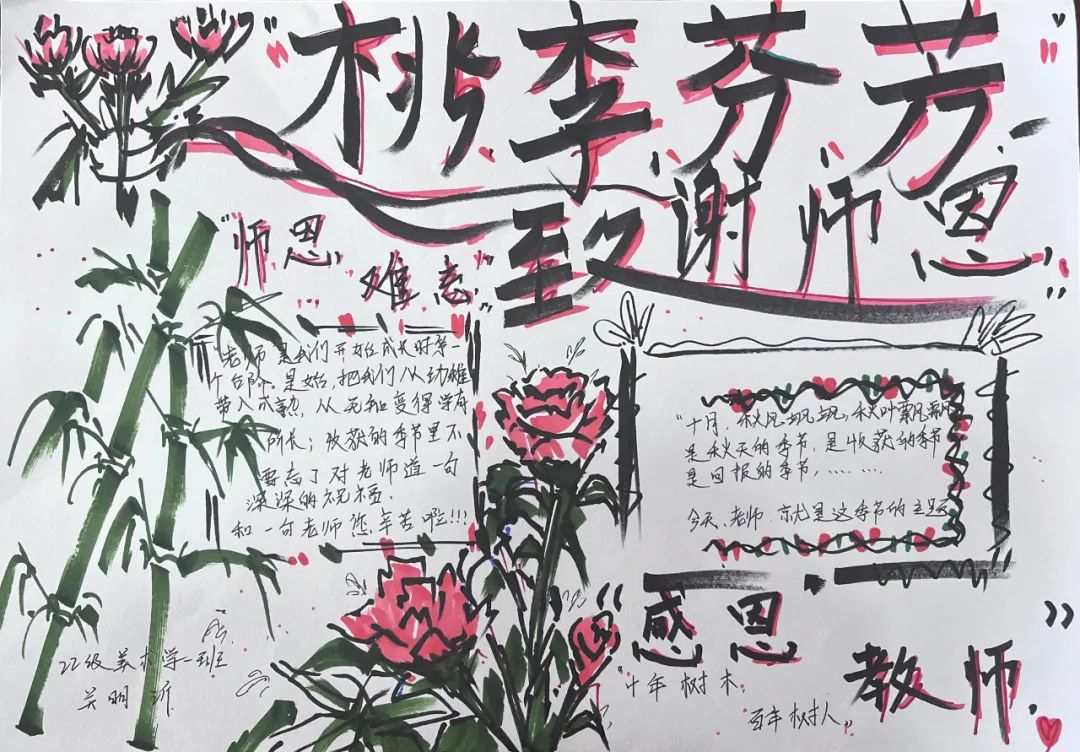 “桃李芬芳”
致谢师恩”
“师恩
难忘”
“老师是我们开始成长时第一
个台阶,是始,把我们从幼稚
带入成熟,从无知变得学有
所长;收获的季节里不
要忘了对老师道一句
深深的祝福,
和一句老师您辛苦啦!!!
“十月,秋风飒飒,秋叶飘飘
是秋天的季节,是收获的季节
是回报的季节,………
今天,老师,亦尤是这季节的主题
“感恩
教师”
十年树木,
百年树人。
22级美术学一班
关明沂